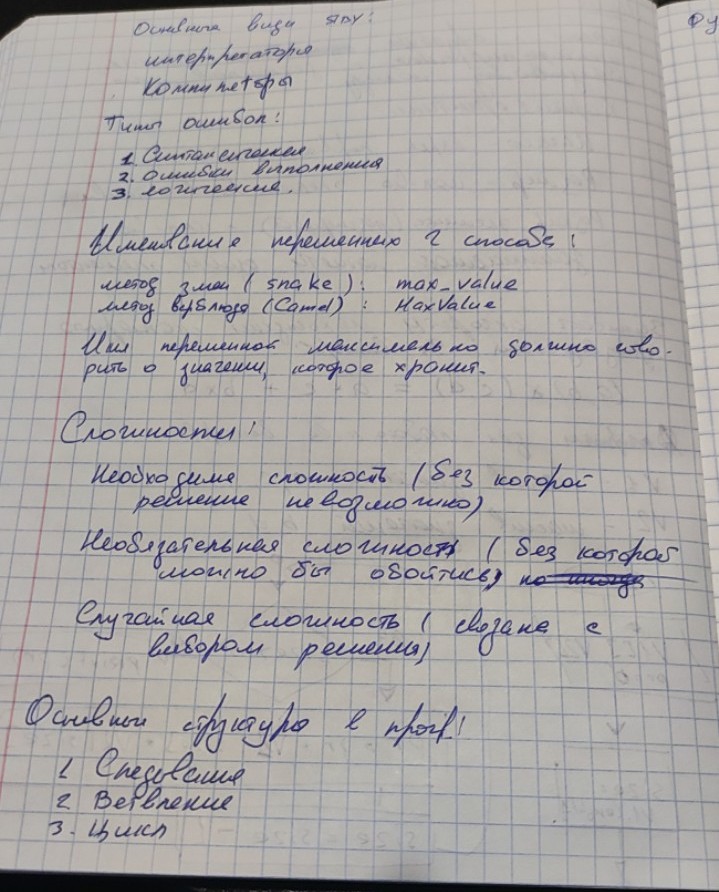 Основные виды япу:
интерпретаторы
Компиляторы
Типы ошибок:
1. Синтаксическая
2. ошибки выполнения
3. логические.
Именование переменных 2 способа:
метод змеи (snake): max_value
метод верблюда (Camel): MaxValue
Имя переменной максимально должно гово-
рить о значении, которое хранит.
Сложности!
Необходимая сложность (без которой
решение невозможно)
Необязательная сложность (без которой
можно бы обойтись)
Случайная сложность (связана с
выбором решения)
Основные структуры в прогр!
1 Следование
2 Ветвление
3. Цикл
Фу